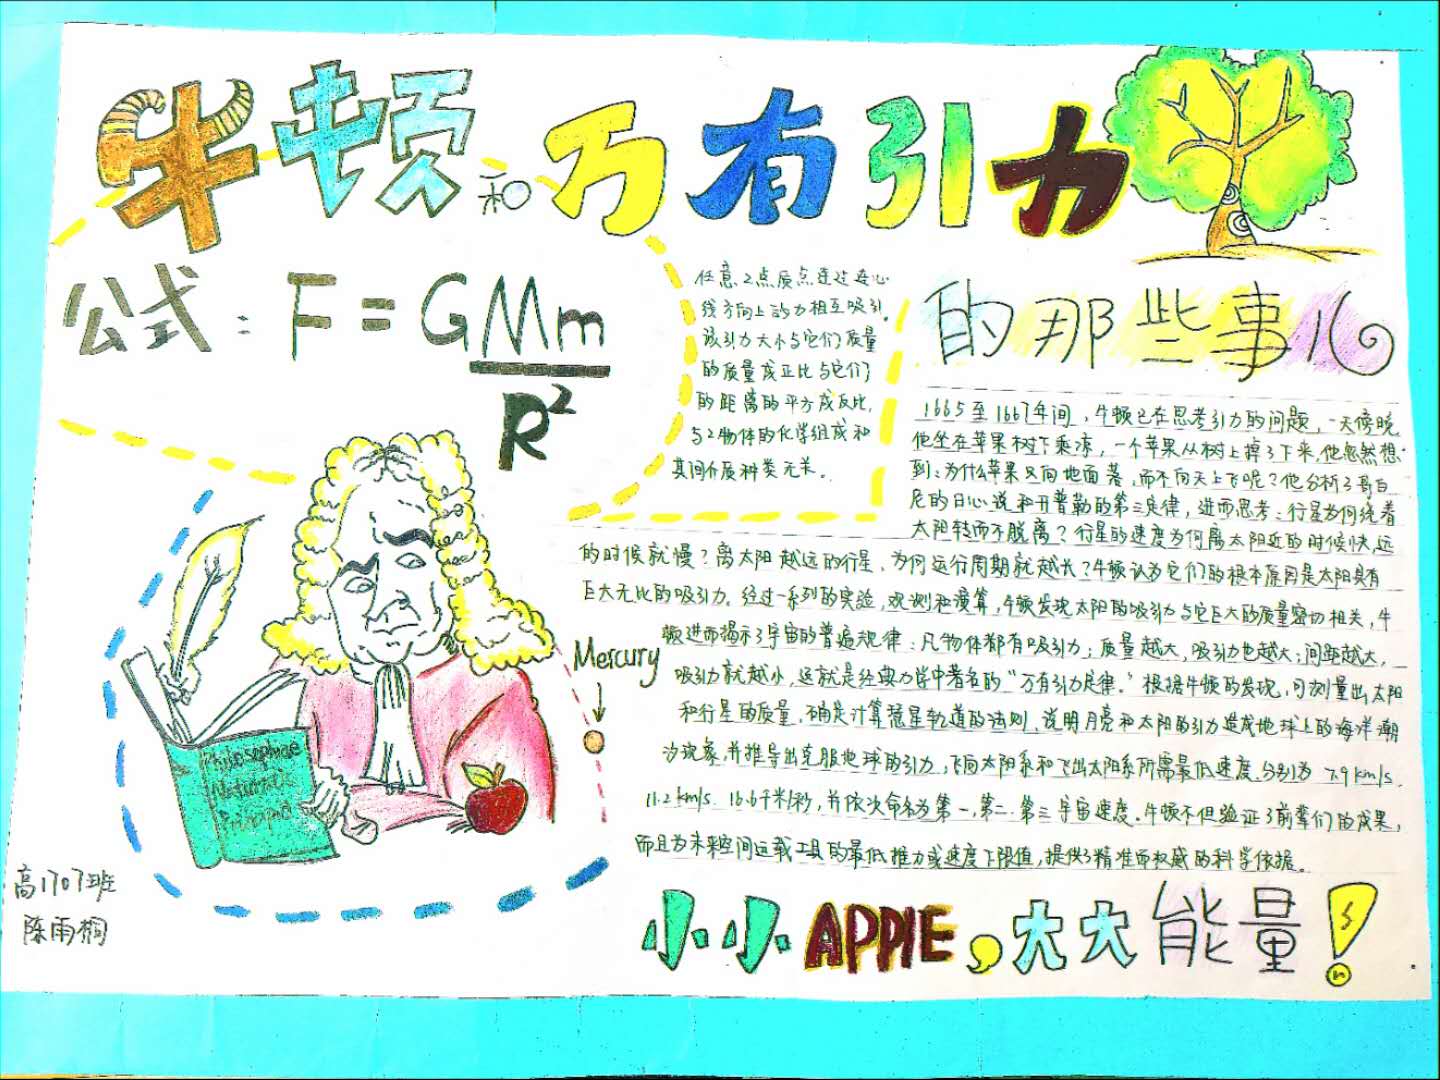 牛顿和万有引力
的那些事儿
公式: F=GMm
R²
任意2点质点通过连心
线方向上的力相互吸引。
该引力大小与它们质量
的质量成正比与它们
的距离的平方成反比,
与2物体的化学组成和
其间介质种类无关。
1665至1667年间,牛顿已在思考引力的问题,一天傍晚
他坐在苹果树下乘凉,一个苹果从树上掉了下来,他忽然想
到:为什么苹果只向地面落,而不向天上飞呢?他分析了哥白
尼的日心说和开普勒的第三定律,进而思考:行星为何绕着
太阳转而不脱离?行星的速度为何离太阳近的时候快,远
的时候就慢?离太阳越远的行星,为何运行周期就越长?牛顿认为它们的根本原因是太阳具有
巨大无比的吸引力。经过一系列的实验,观测和演算,牛顿发现太阳的吸引力与它巨大的质量密切相关,牛
顿进而揭示了宇宙的普遍规律:凡物体都有吸引力;质量越大,吸引力也越大;间距越大,
吸引力就越小,这就是经典力学中著名的"万有引力定律。"根据牛顿的发现,可测量出太阳
和行星的质量,确定计算彗星轨道的法则,说明月亮和太阳的引力造成地球上的海洋潮
汐现象,并推导出克服地球的引力,飞向太阳系和飞出太阳系所需最低速度,分别为 7.9km/s,
11.2km/s、16.6千米/秒,并依次命名为第一,第二.第三宇宙速度。牛顿不但验证了前辈们的成果,
而且为未来空间运载工具的最低推力或速度下限值,提供了精准而权威的科学依据。
Mercury
Philosophiae
Naturalis
高1707班
陈雨桐
小小APPlE,大大能量!